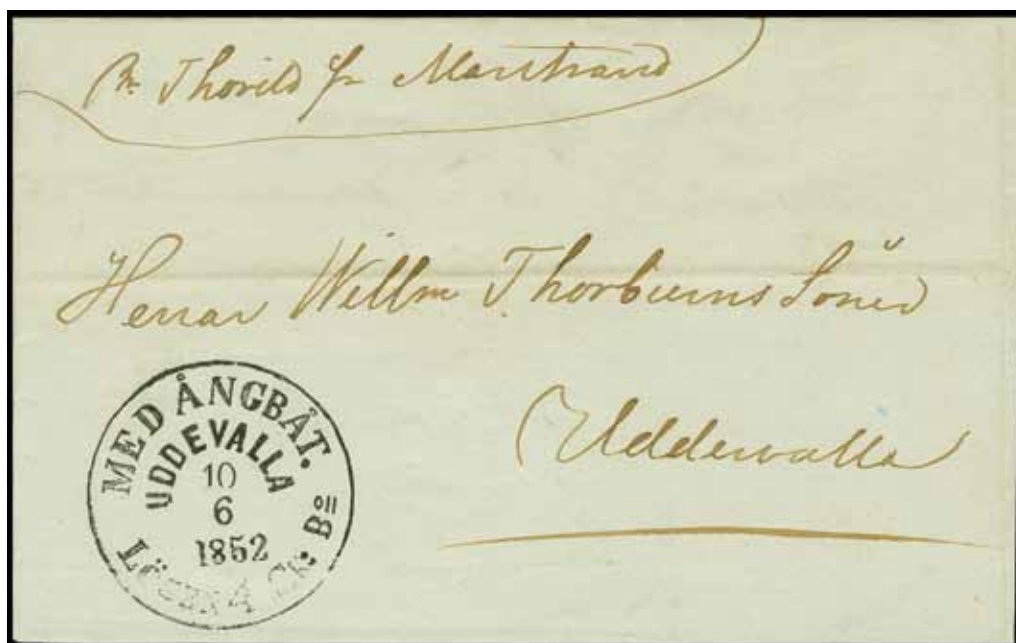 pr Thorild fr Marstrand
Herrar Willm Thorburns Söner
Uddevalla
MED ÅNGBÅT.
UDDEVALLA
10
6
1852
LÖSEN 4 Sk: Bco